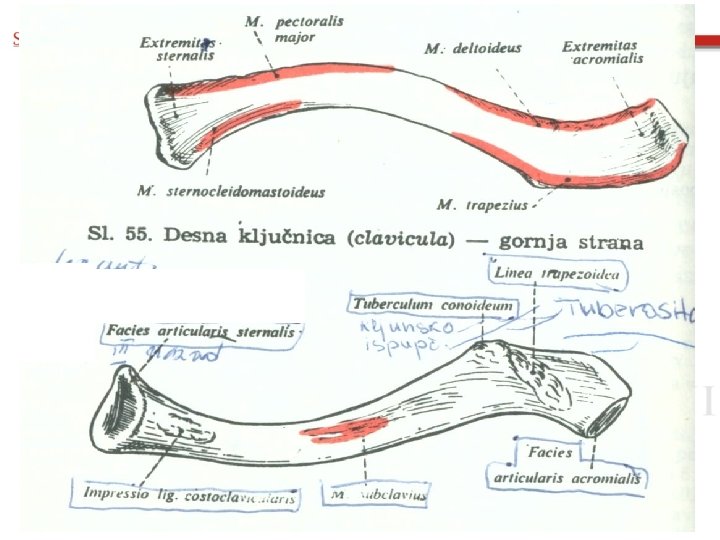 S
M. pectoralis
major
Extremitas
sternalis
M. deltoideus
Extremitas
acromialis
M. sternocleidomastoideus
M. trapezius
Sl. 55. Desna ključnica (clavicula) — gornja strana
Linea trapezoidea
Tuberculum conoideum
Tuberosita
kljunsko
ispupč.
Facies articularis sternalis
III
Facies
articularis acromialis
Impressio lig. costoclavicularis
M. subclavius
I